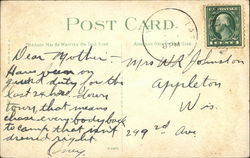 POST CARD.
Dear Mother -
Have been on
guard duty for the
last 24 hrs down
town, that means
chase everybody back
to camp that isn't
dressed right
Mrs W R Johnston
Appleton
Wis.
299 2nd Ave